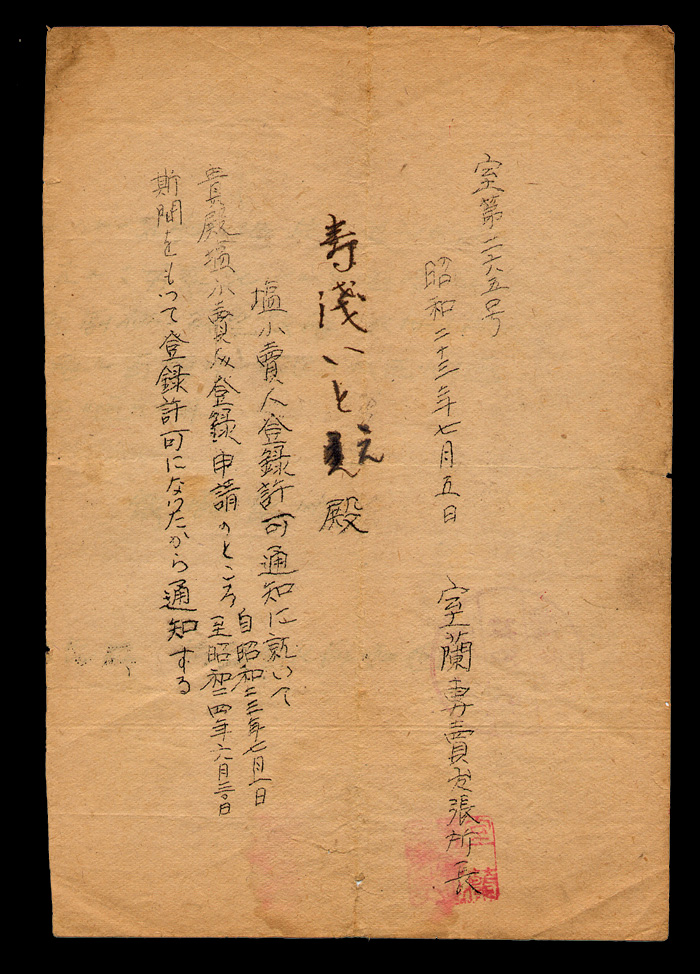 室第二六五号
昭和二十三年七月五日
室蘭専賣出張所長
寿浅いとゑ殿
塩小賣人登録許可通知に就いて
貴殿塩小賣人登録申請のところ
自昭和二三年七月一日
至昭和二四年六月三〇日
期間をもつて登録許可になつたから通知する
室蘭